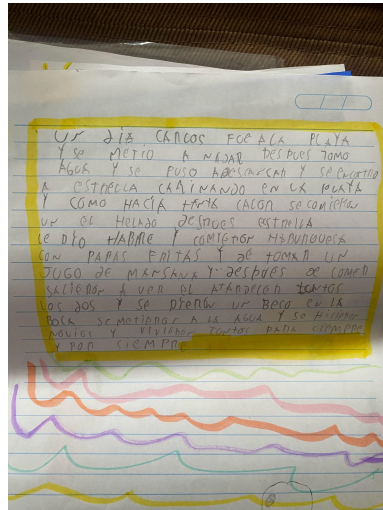 Un diz CARCOS FOE ALA PLAYA
Y se METIO A NADAR DESPUES TOMO
AGUA Y SE PUSO ADESCARCAR Y SE ENCONTRO
A ESTRELLA CAMINANDO EN LA PLAYA
Y COMO HACIA TANTA CALOR SE COMIERON
UN EL HELADO DESPUES ESTRELLA
LE DIO HABRE Y COMIERON HABURGUESA
CON PAPAS FRITAS Y DE TOMAR UN
JUGO DE MANSANA Y DESPUES DE COMER
SALIERON A VER EL ATARDECER JONTOS
LOS DOS Y SE DIERON UN BECO EN LA
BOCA SE METIERON A LA AGUA Y SE HISIERON
NOVIOS Y VIVIERON JONTOS PARA SIEMPRE
Y POR SIEMPRE